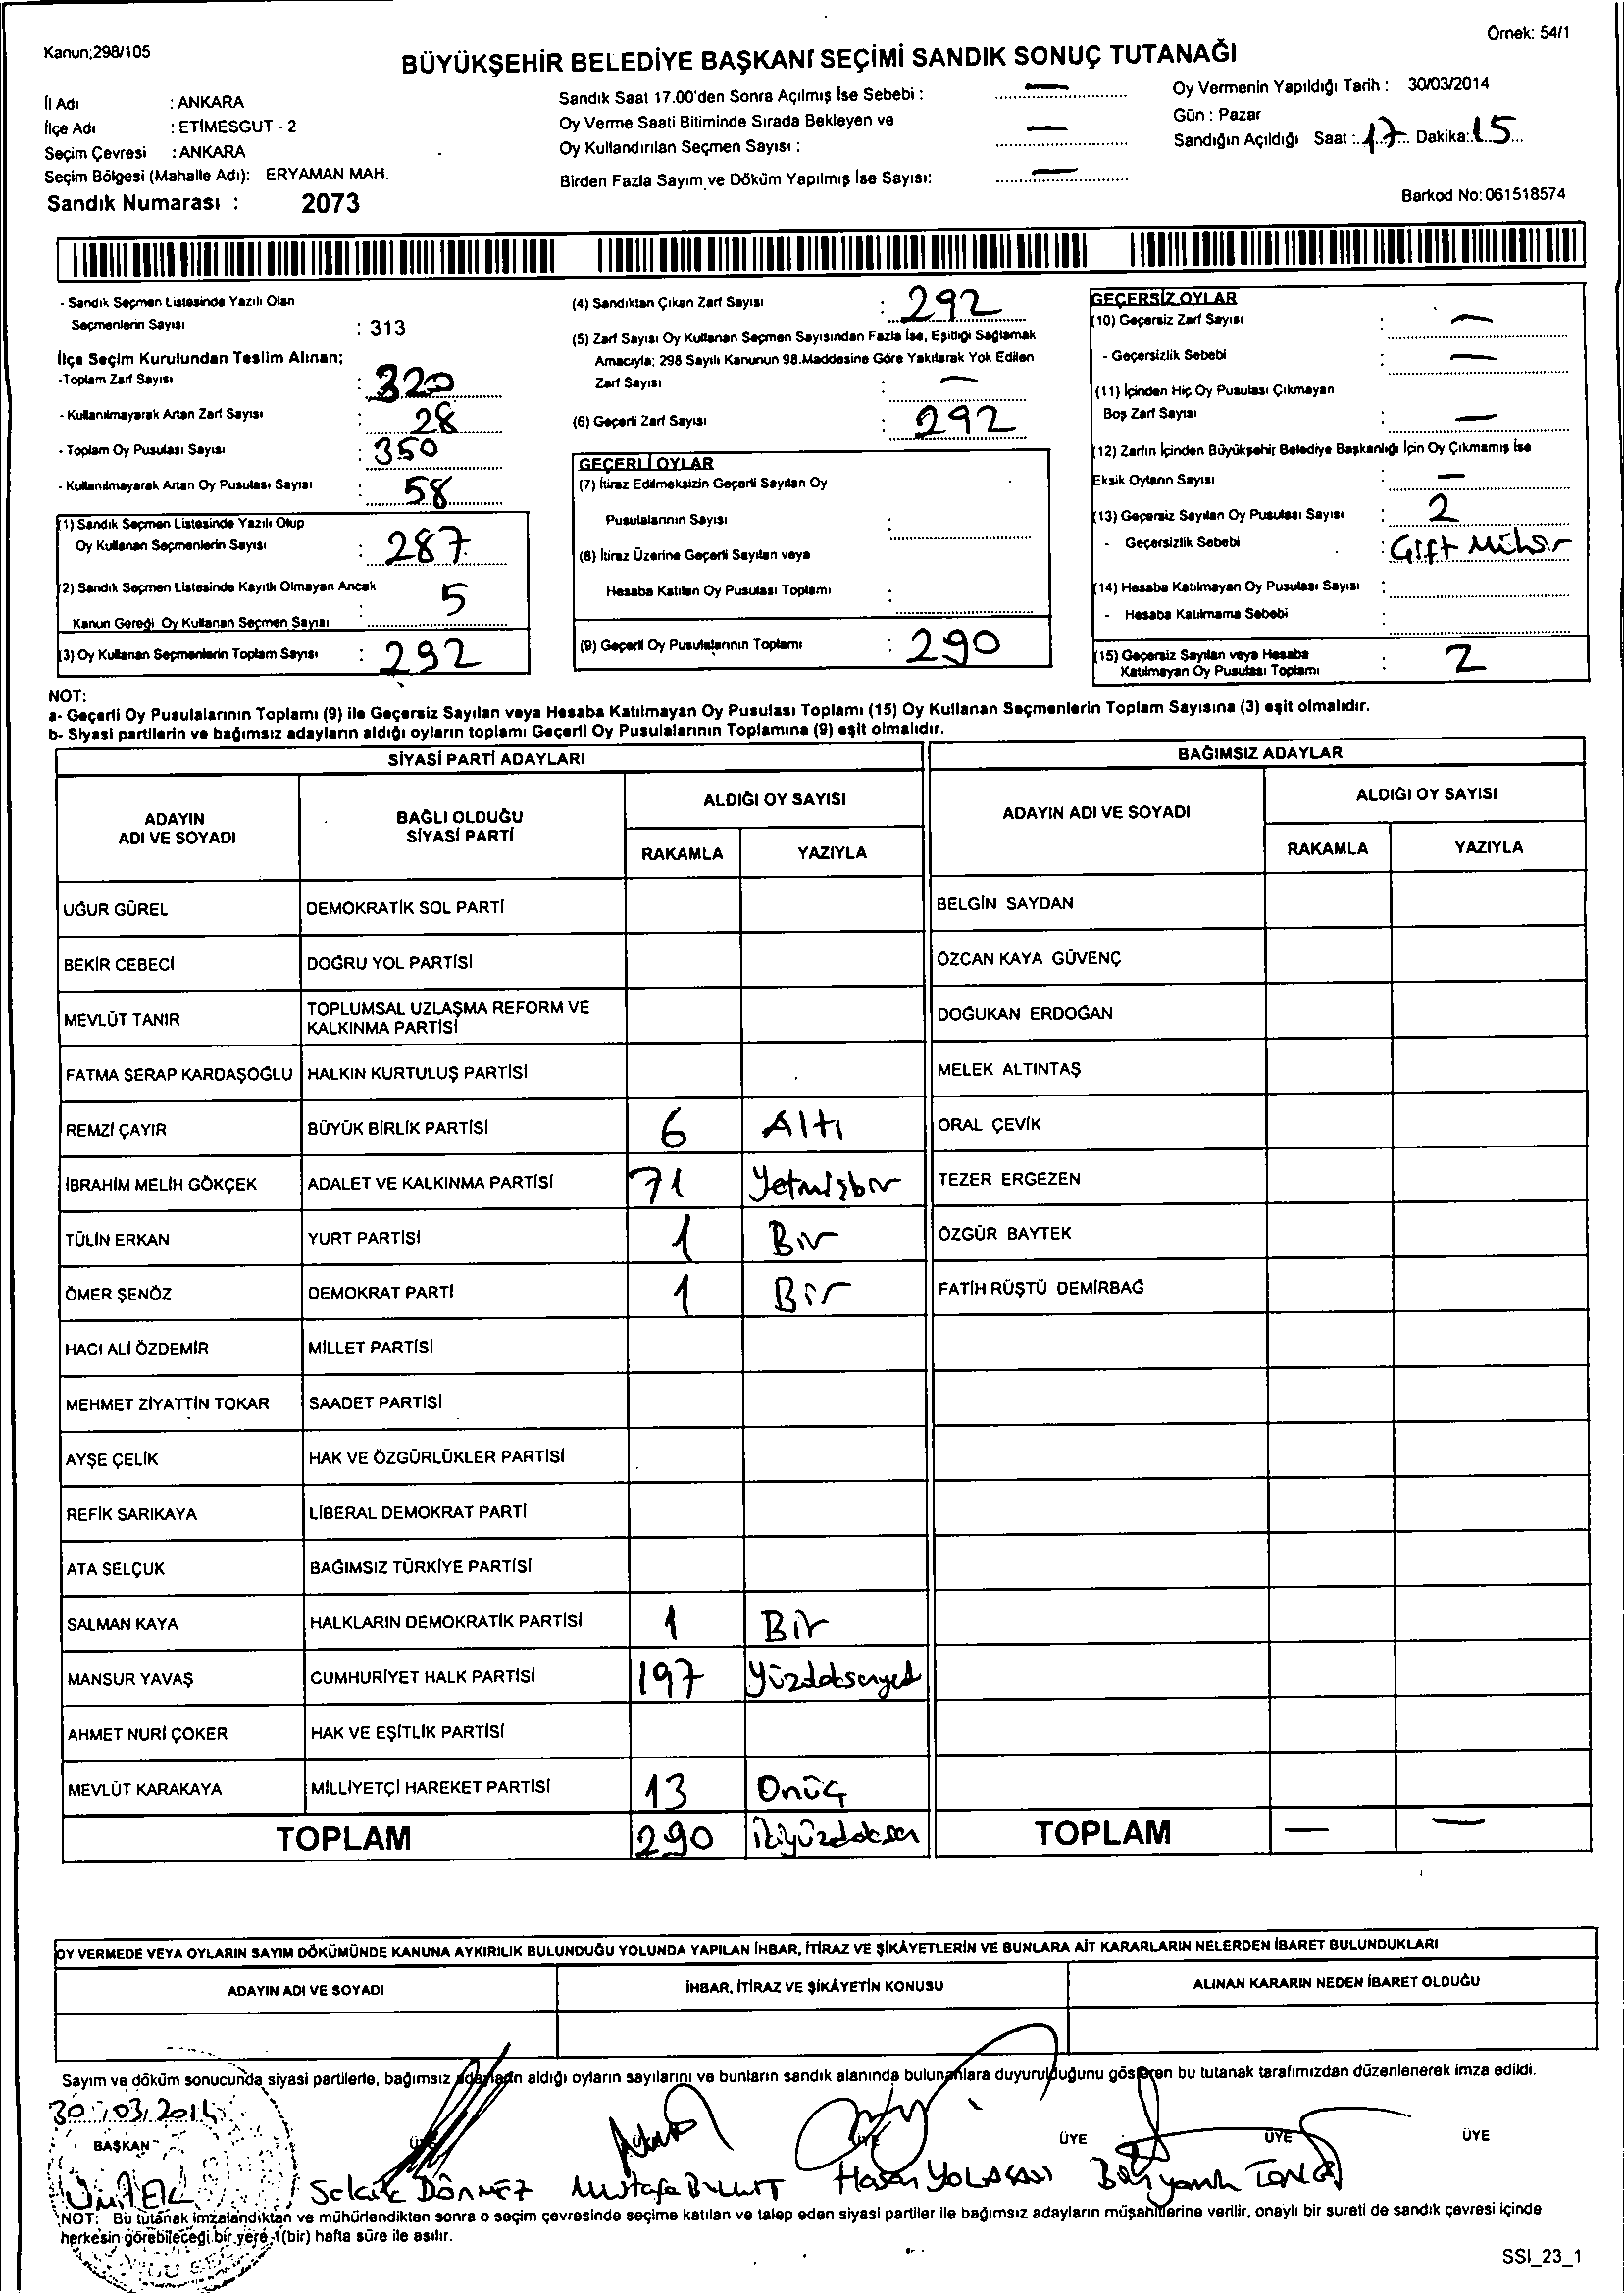 Kanun;298/105
Örnek: 54/1
BÜYÜKŞEHİR BELEDİYE BAŞKANI SEÇİMİ SANDIK SONUÇ TUTANAĞI
İl Adı : ANKARA
İlçe Adı : ETİMESGUT - 2
Seçim Çevresi : ANKARA
Seçim Bölgesi (Mahalle Adı): ERYAMAN MAH.
Sandık Numarası : 2073
Sandık Saat 17.00'den Sonra Açılmış İse Sebebi : —
Oy Verme Saati Bitiminde Sırada Bekleyen ve
Oy Kullandırılan Seçmen Sayısı : —
Birden Fazla Sayım ve Döküm Yapılmış İse Sayısı: —
Oy Vermenin Yapıldığı Tarih : 30/03/2014
Gün : Pazar
Sandığın Açıldığı Saat : 17 Dakika: 15
Barkod No: 061518574
- Sandık Seçmen Listesinde Yazılı Olan
Seçmenlerin Sayısı : 313
İlçe Seçim Kurulundan Teslim Alınan;
-Toplam Zarf Sayısı : 320
- Kullanılmayarak Artan Zarf Sayısı : 28
- Toplam Oy Pusulası Sayısı : 350
- Kullanılmayarak Artan Oy Pusulası Sayısı : 58
(1) Sandık Seçmen Listesinde Yazılı Olup
Oy Kullanan Seçmenlerin Sayısı : 287
(2) Sandık Seçmen Listesinde Kayıtlı Olmayan Ancak
Kanun Gereği Oy Kullanan Seçmen Sayısı : 5
(3) Oy Kullanan Seçmenlerin Toplam Sayısı : 292
(4) Sandıktan Çıkan Zarf Sayısı : 292
(5) Zarf Sayısı Oy Kullanan Seçmen Sayısından Fazla İse, Eşitliği Sağlamak
Amacıyla; 298 Sayılı Kanunun 98.Maddesine Göre Yakılarak Yok Edilen
Zarf Sayısı : —
(6) Geçerli Zarf Sayısı : 292
GEÇERLİ OYLAR
(7) İtiraz Edilmeksizin Geçerli Sayılan Oy
Pusulalarının Sayısı :
(8) İtiraz Üzerine Geçerli Sayılan veya
Hesaba Katılan Oy Pusulası Toplamı :
(9) Geçerli Oy Pusulalarının Toplamı : 290
GEÇERSİZ OYLAR
(10) Geçersiz Zarf Sayısı : —
- Geçersizlik Sebebi : —
(11) İçinden Hiç Oy Pusulası Çıkmayan
Boş Zarf Sayısı : —
(12) Zarfın İçinden Büyükşehir Belediye Başkanlığı İçin Oy Çıkmamış İse
Eksik Oyların Sayısı : —
(13) Geçersiz Sayılan Oy Pusulası Sayısı : 2
- Geçersizlik Sebebi : Çift Mühür
(14) Hesaba Katılmayan Oy Pusulası Sayısı :
- Hesaba Katılmama Sebebi :
(15) Geçersiz Sayılan veya Hesaba
Katılmayan Oy Pusulası Toplamı : 2
NOT:
a- Geçerli Oy Pusulalarının Toplamı (9) ile Geçersiz Sayılan veya Hesaba Katılmayan Oy Pusulası Toplamı (15) Oy Kullanan Seçmenlerin Toplam Sayısına (3) eşit olmalıdır.
b- Siyasi partilerin ve bağımsız adayların aldığı oyların toplamı Geçerli Oy Pusulalarının Toplamına (9) eşit olmalıdır.
SİYASİ PARTİ ADAYLARI
ADAYIN
ADI VE SOYADI
BAĞLI OLDUĞU
SİYASİ PARTİ
ALDIĞI OY SAYISI
RAKAMLA YAZIYLA
UĞUR GÜREL DEMOKRATİK SOL PARTİ
BEKİR CEBECİ DOĞRU YOL PARTİSİ
MEVLÜT TANIR TOPLUMSAL UZLAŞMA REFORM VE
KALKINMA PARTİSİ
FATMA SERAP KARDAŞOĞLU HALKIN KURTULUŞ PARTİSİ
REMZİ ÇAYIR BÜYÜK BİRLİK PARTİSİ 6 Altı
İBRAHİM MELİH GÖKÇEK ADALET VE KALKINMA PARTİSİ 71 Yetmişbir
TÜLİN ERKAN YURT PARTİSİ 1 Bir
ÖMER ŞENÖZ DEMOKRAT PARTİ 1 Bir
HACI ALİ ÖZDEMİR MİLLET PARTİSİ
MEHMET ZİYATTİN TOKAR SAADET PARTİSİ
AYŞE ÇELİK HAK VE ÖZGÜRLÜKLER PARTİSİ
REFİK SARIKAYA LİBERAL DEMOKRAT PARTİ
ATA SELÇUK BAĞIMSIZ TÜRKİYE PARTİSİ
SALMAN KAYA HALKLARIN DEMOKRATİK PARTİSİ 1 Bir
MANSUR YAVAŞ CUMHURİYET HALK PARTİSİ 197 Yüzdoksanyedi
AHMET NURİ ÇOKER HAK VE EŞİTLİK PARTİSİ
MEVLÜT KARAKAYA MİLLİYETÇİ HAREKET PARTİSİ 13 Onüç
TOPLAM 290 İkiyüzdoksan
BAĞIMSIZ ADAYLAR
ADAYIN ADI VE SOYADI
ALDIĞI OY SAYISI
RAKAMLA YAZIYLA
BELGİN SAYDAN
ÖZCAN KAYA GÜVENÇ
DOĞUKAN ERDOĞAN
MELEK ALTINTAŞ
ORAL ÇEVİK
TEZER ERGEZEN
ÖZGÜR BAYTEK
FATİH RÜŞTÜ DEMİRBAĞ
TOPLAM — —
OY VERMEDE VEYA OYLARIN SAYIM DÖKÜMÜNDE KANUNA AYKIRILIK BULUNDUĞU YOLUNDA YAPILAN İHBAR, İTİRAZ VE ŞİKÂYETLERİN VE BUNLARA AİT KARARLARIN NELERDEN İBARET BULUNDUKLARI
ADAYIN ADI VE SOYADI İHBAR, İTİRAZ VE ŞİKÂYETİN KONUSU ALINAN KARARIN NEDEN İBARET OLDUĞU
Sayım ve döküm sonucunda siyasi partilerle, bağımsız adayların aldığı oyların sayılarını ve bunların sandık alanında bulunanlara duyurulduğunu gösteren bu tutanak tarafımızdan düzenlenerek imza edildi.
30/03/2014
BAŞKAN ÜYE ÜYE ÜYE ÜYE ÜYE ÜYE
Selcik DÖNMEZ Mustafa BULUT Hasan
NOT: Bu tutanak imzalandıktan ve mühürlendikten sonra o seçim çevresinde seçime katılan ve talep eden siyasi partiler ile bağımsız adayların müşahitlerine verilir, onaylı bir sureti de sandık çevresi içinde
herkesin görebileceği bir yere 1 (bir) hafta süre ile asılır.
SSI_23_1